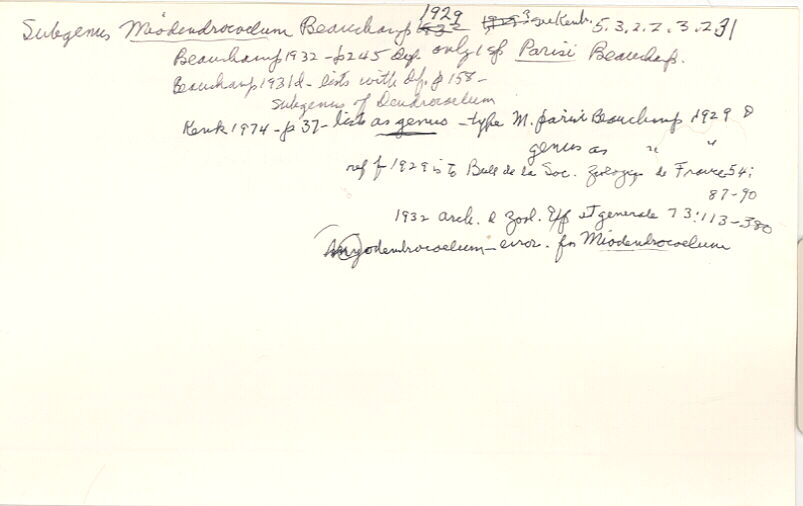 Subgenus Miodendrocoelum Beauchamp 1929 see Kenk. 5.3.2.2.3.2.31
Beauchamp 1932 - p245 Dif. only 1 sp Parisi Beauchamp.
Beauchamp 1931d - lists with Df. p 158 -
Subgenus of Dendrocoelum
Kenk 1974 - p 37 - lists as genus - type M. parisi Beauchamp 1929
genus as " "
ref for 1929 is to Bull de la Soc. Zoologique de France 54:
87-90
1932 Arch. d Zool. Exp et generale 73:113-380
Myodendrocoelum - error. for Miodendrocoelum